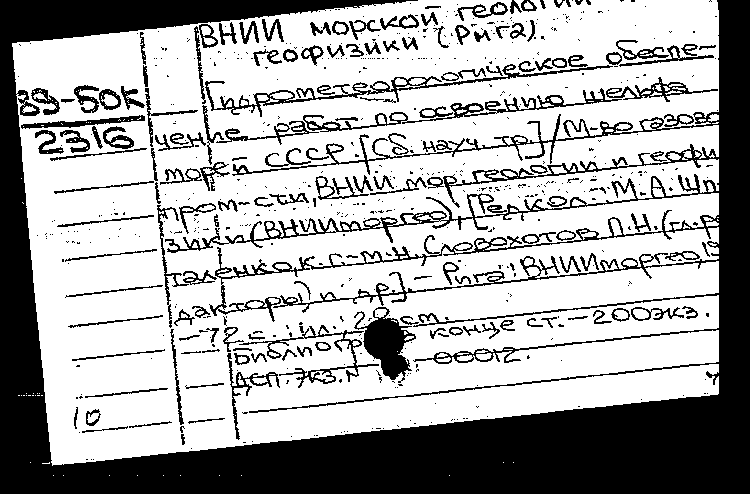 ВНИИ морской геологии и
геофизики (Рига).
89-50К
2316
Гидрометеорологическое обеспе-
чение работ по освоению шельфа
морей СССР: [Сб. науч. тр.] / М-во газовой
пром-сти, ВНИИ мор. геологии и геофи
зики (ВНИИморгео); [Редкол.: М.А. Шп
таленко, к. г.-м. н., Словохотов П.Н. (гл. ре
дакторы) и др.]. - Рига: ВНИИморгео, 19
- 72 с.: ил.; 20 см.
Библиогр. в конце ст. - 200 экз.
ДСП. Экз. N 00012.
10